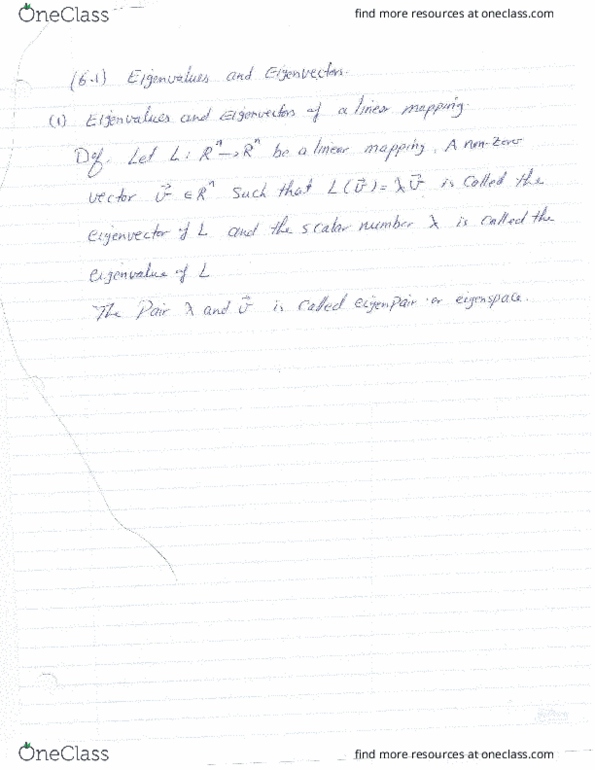 OneClass
find more resources at oneclass.com
(6.1) Eigenvalues and Eigenvectors.
(1) Eigenvalues and Eigenvectors of a linear mapping.
Def. Let L: Rⁿ→Rⁿ be a linear mapping. A non-zero
vector v⃗ ∈ Rⁿ Such that L(v⃗) = λv⃗ is called the
eigenvector of L and the scalar number λ is called the
eigenvalue of L
The Pair λ and v⃗ is called eigenpair or eigenspace.
OneClass
find more resources at oneclass.com